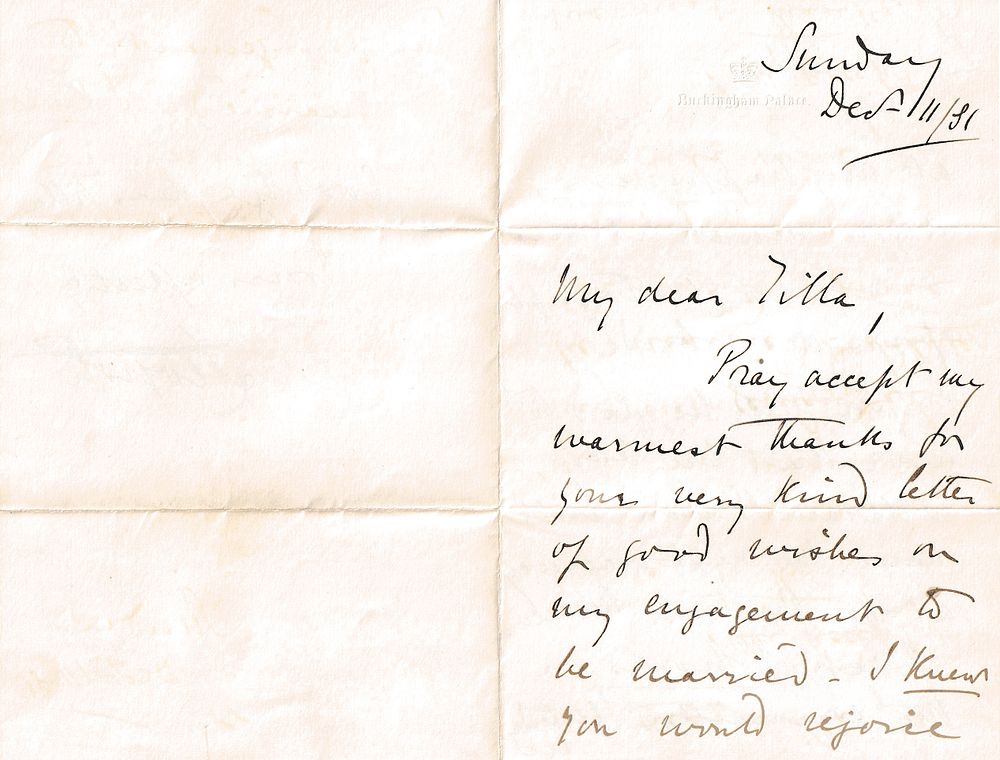 Sunday
Buckingham Palace.
Decr 11/81
My dear Tilla,
Pray accept my
warmest thanks for
your very kind letter
of good wishes on
my engagement to
be married - I knew
you would rejoice